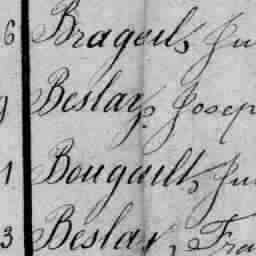 6 Brageul, Ju
9 Beslay, Josep
1 Bougault, Ju
3 Beslay, Fra